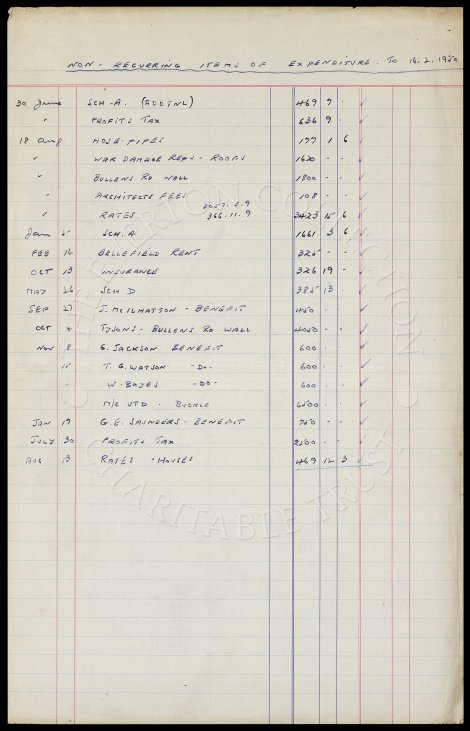 NON-RECURRING ITEMS OF EXPENDITURE. TO 16.2.1950
30 June SCH-A. (ADDTNL) 469 9 -
" PROFITS TAX 636 9 -
18 Aug HOSE-PIPES 177 1 6
" WAR DAMAGE REPS - ROOFS 1620 - -
" BULLENS RD WALL 1800 - -
" ARCHITECTS FEES 108 - -
3057.3.9
" RATES 366.11.9 3423 15 6
Jan 5 SCH.A 1661 3 6
FEB 16 BELLEFIELD RENT 325 - -
OCT 13 INSURANCE 326 19 -
MAY 26 SCH D 385 13 -
SEP 27 J. McILHATTON - BENEFIT 450 - -
OCT 4 TYSONS - BULLENS RD WALL 4050 - -
NOV 8 G. JACKSON BENEFIT 600 - -
" T.G. WATSON -DO- 600 - -
" W. BOYES -DO- 600 - -
" M/C UTD - BUCKLE 6500 - -
JAN 17 G.E. SAUNDERS - BENEFIT 750 - -
JULY 30 PROFITS TAX 2500 - -
AUG 13 RATES - HOUSES 469 12 3
THE EVERTON COLLECTION
CHARITABLE TRUST